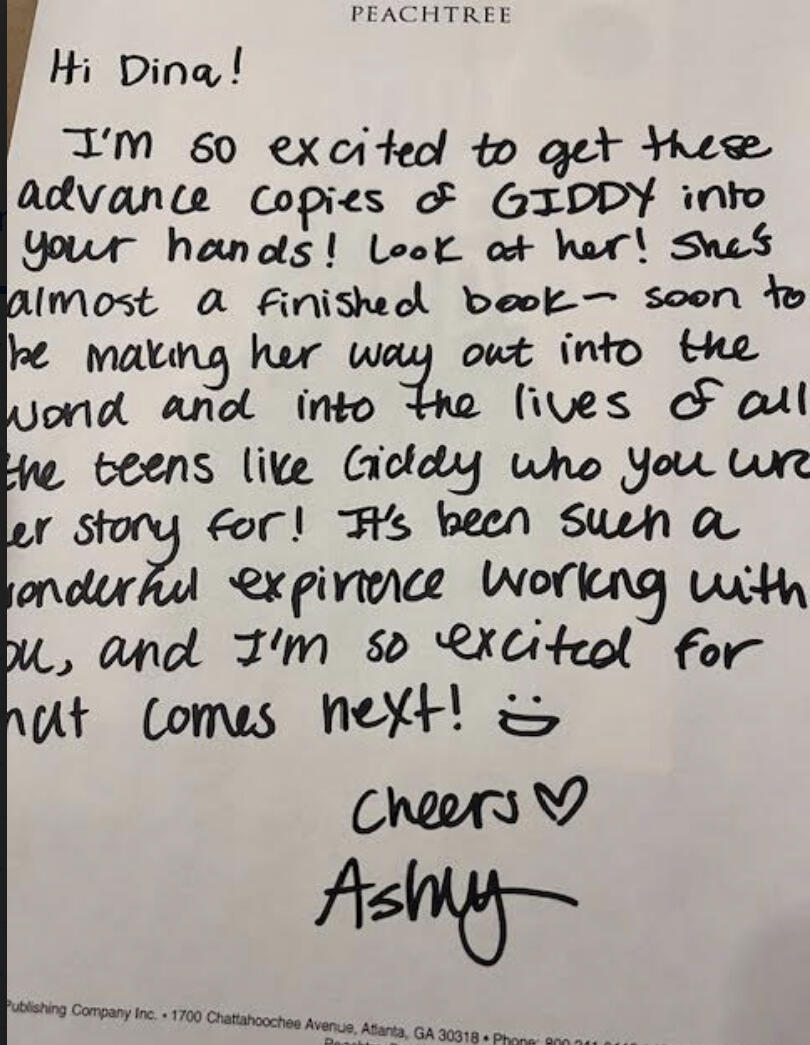 PEACHTREE
Hi Dina!
I'm so excited to get these
advance copies of GIDDY into
your hands! Look at her! She's
almost a finished book— soon to
be making her way out into the
world and into the lives of all
the teens like Giddy who you wro
er story for! It's been such a
onderful expirience working with
ou, and I'm so excited for
hat comes next!
Cheers ♡
Ashly
Publishing Company Inc. • 1700 Chattahoochee Avenue, Atlanta, GA 30318 • Phone: 800